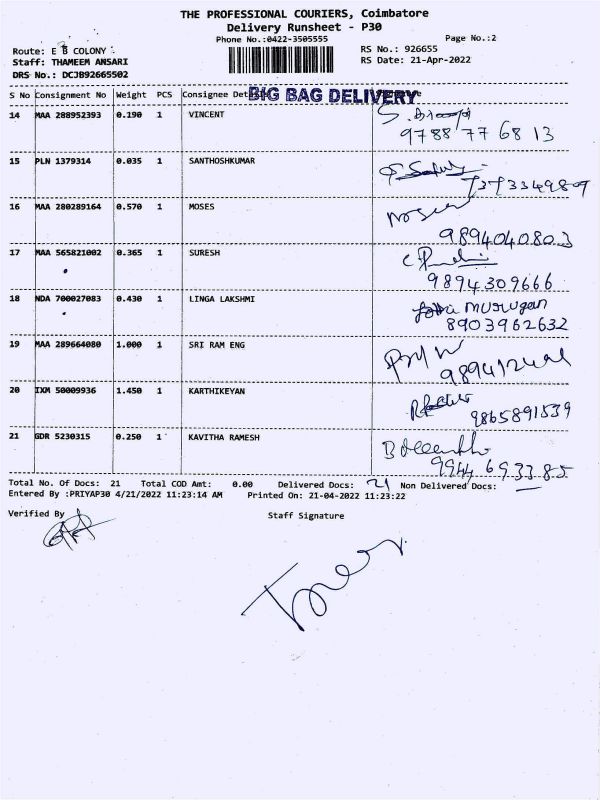 THE PROFESSIONAL COURIERS, Coimbatore
Delivery Runsheet - P30
Phone No.:0422-3505555
Page No.:2
Route: E B COLONY
RS No.: 926655
Staff: THAMEEM ANSARI
RS Date: 21-Apr-2022
DRS No.: DCJB92665502
S No Consignment No Weight PCS Consignee Details
BIG BAG DELIVERY
14 MAA 288952393 0.190 1 VINCENT
9788 77 68 13
15 PLN 1379314 0.035 1 SANTHOSHKUMAR
16 MAA 280289164 0.570 1 MOSES
Moses
9894040803
17 MAA 565821002 0.365 1 SURESH
9894309666
18 NDA 700027083 0.430 1 LINGA LAKSHMI
Murugan
8903962632
19 MAA 289664080 1.000 1 SRI RAM ENG
20 IXM 50009936 1.450 1 KARTHIKEYAN
9865891539
21 GDR 5230315 0.250 1 KAVITHA RAMESH
9944 693385
Total No. Of Docs: 21 Total COD Amt: 0.00 Delivered Docs: 21 Non Delivered Docs: —
Entered By :PRIYAP30 4/21/2022 11:23:14 AM Printed On: 21-04-2022 11:23:22
Verified By
Staff Signature